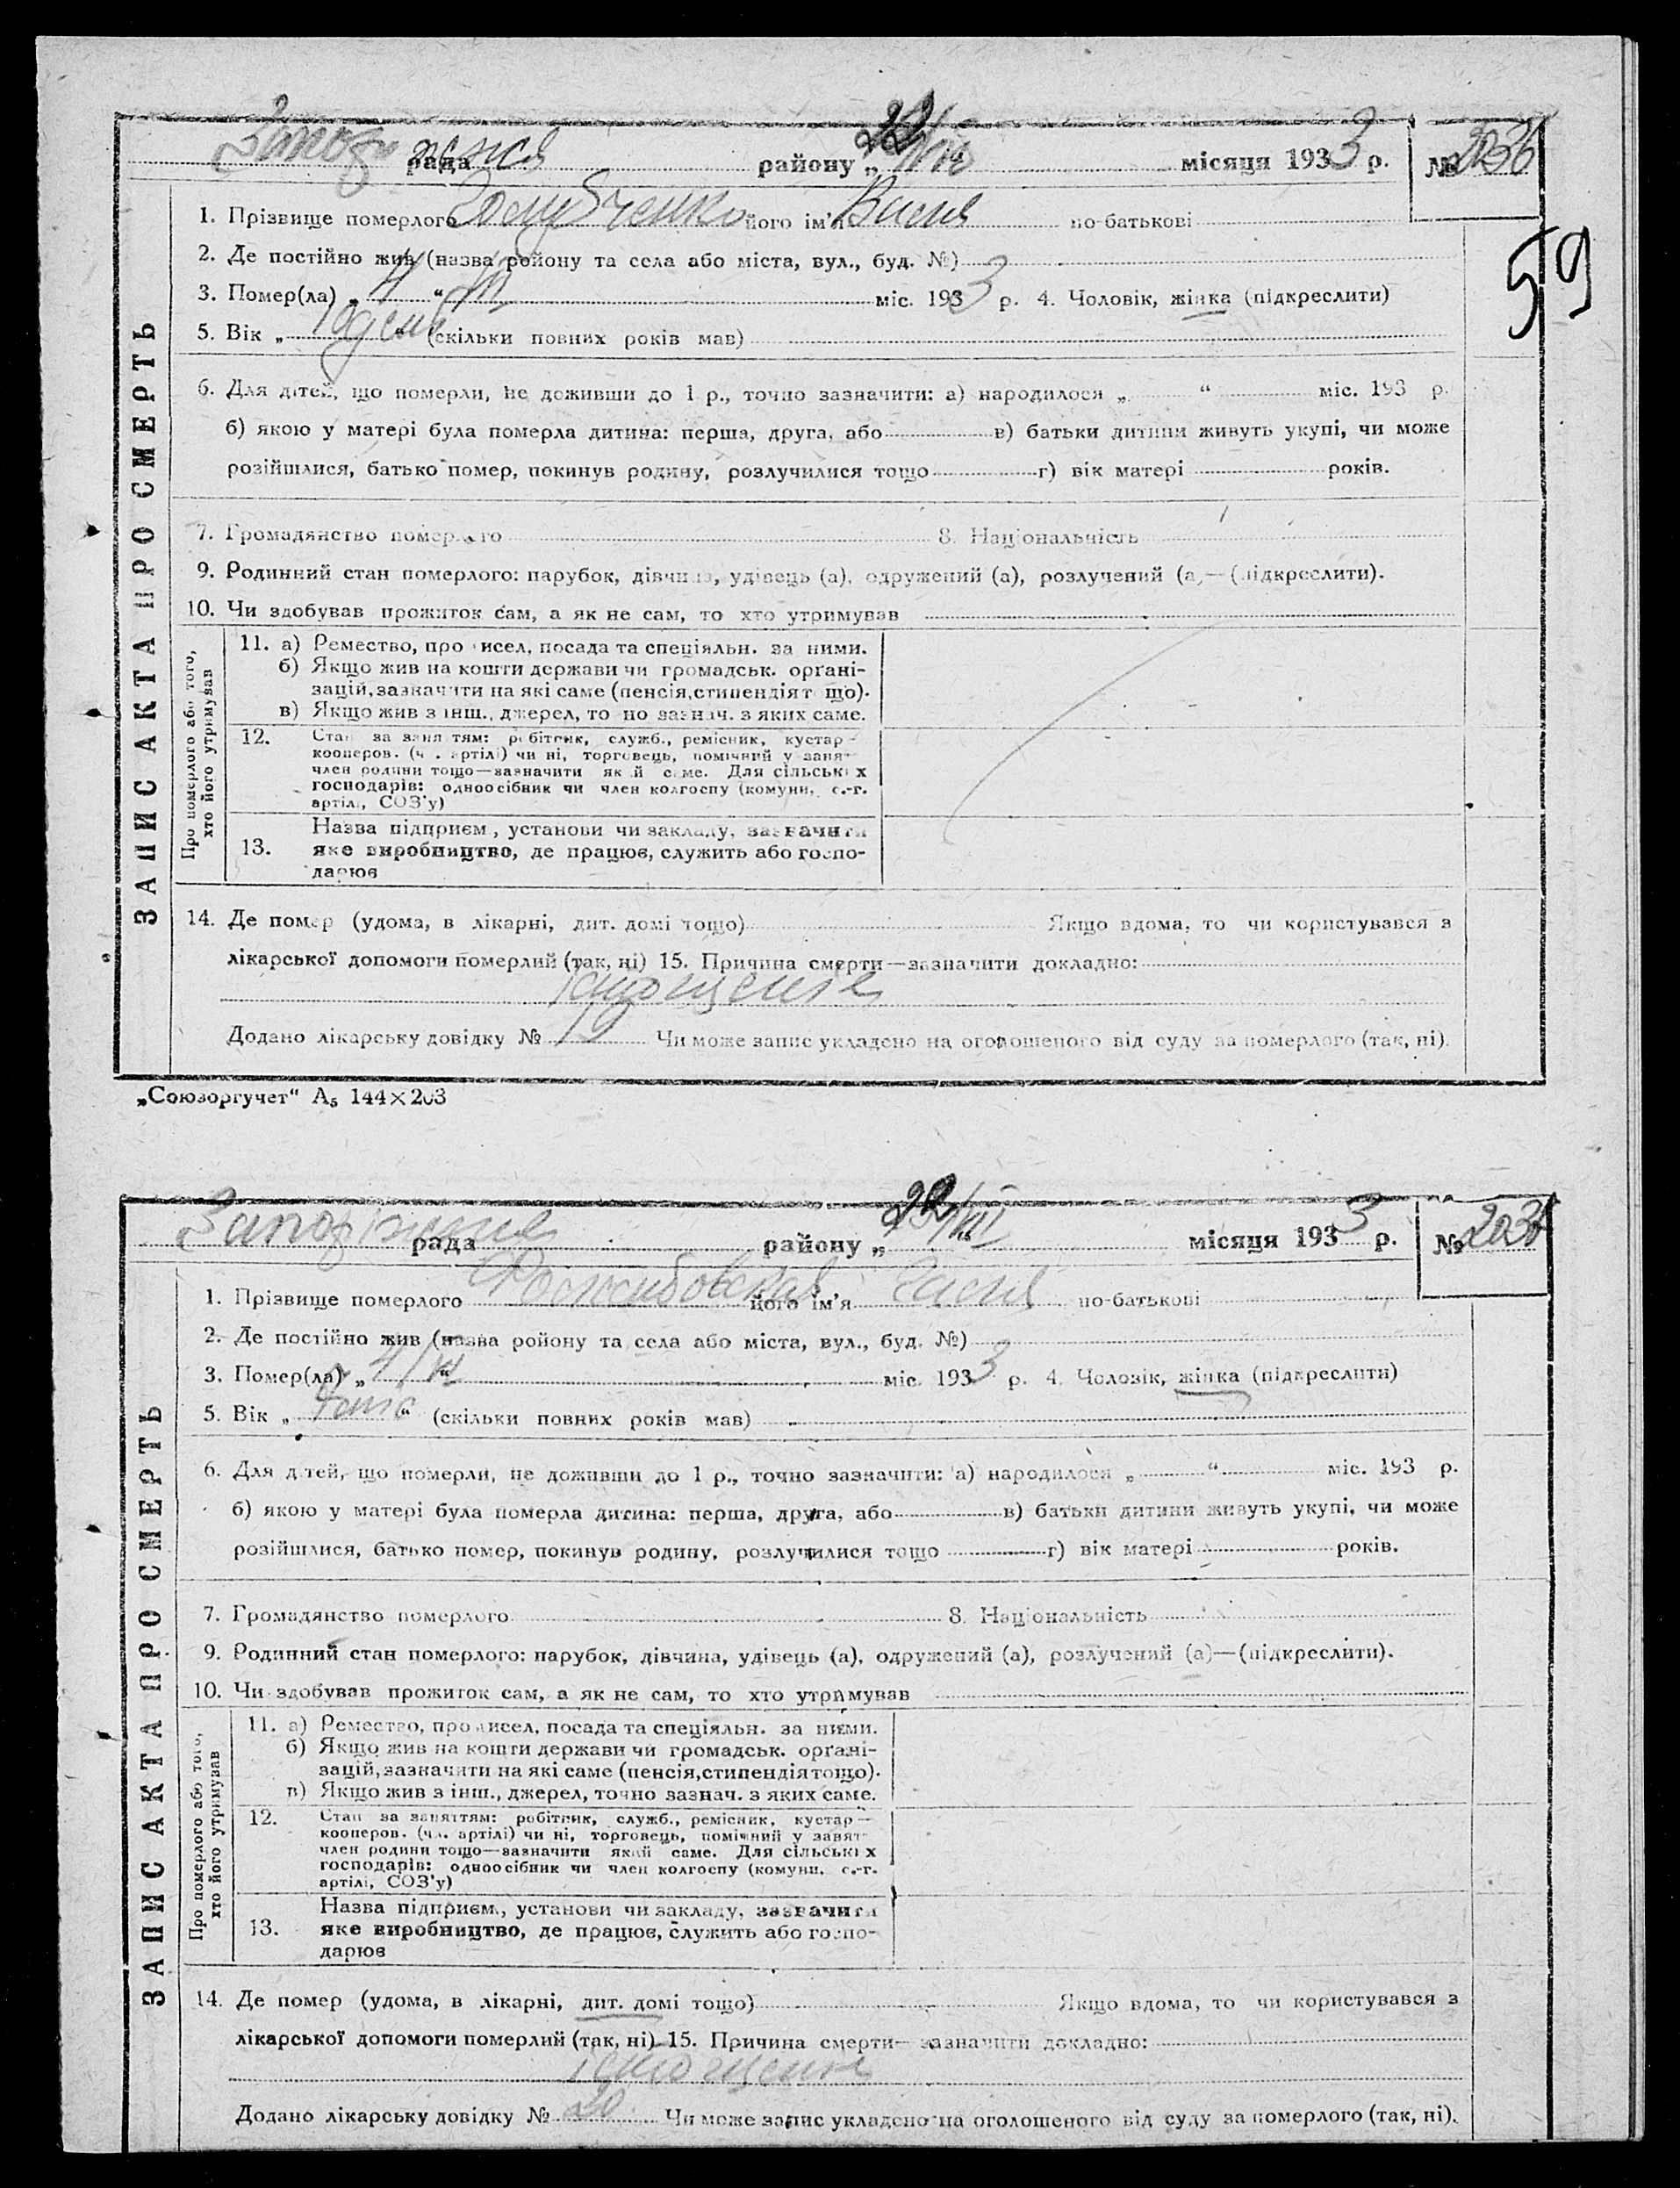 рада району „22/VII“ місяця 1933 р. №
59
ЗАПИС АКТА ПРО СМЕРТЬ
1. Прізвище померлого Голубченко його ім'я по-батькові
2. Де постійно жив (назва ройону та села або міста, вул., буд. №)
3. Помер(ла) „ “ міс. 1933 р. 4. Чоловік, жінка (підкреслити)
5. Вік „ (скільки повних років мав)
6. Для дітей, що померли, не доживши до 1 р., точно зазначити: а) народилося „ “ міс. 193 р.
б) якою у матері була померла дитина: перша, друга, або в) батьки дитини живуть укупі, чи може
розійшлися, батько помер, покинув родину, розлучилися тощо г) вік матері років.
7. Громадянство померлого 8. Національність
9. Родинний стан померлого: парубок, дівчина, удівець (а), одружений (а), розлучений (а)—(підкреслити).
10. Чи здобував прожиток сам, а як не сам, то хто утримував
Про померлого або того, хто його утримував
11. а) Ремество, про исел, посада та спеціяльн. за ними.
б) Якщо жив на кошти держави чи громадськ. орґані-
зацій, зазначити на які саме (пенсія, стипендія т що).
в) Якщо жив з інш., джерел, то но зазнач. з яких саме.
12. Стан за заняттям: робітник, служб., ремісник, кустар—
кооперов. (чл. артілі) чи ні, торговець, помічний у занят
член родини тощо—зазначити який саме. Для сільських
господарів: одноосібник чи член колгоспу (комуни, с.-г.
артілі, СОЗ'у)
Назва підприєм., установи чи закладу, зазначити
13. яке виробництво, де працює, служить або госпо-
дарює
14. Де помер (удома, в лікарні, дит. домі тощо) Якщо вдома, то чи користувався з
лікарської допомоги померлий (так, ні) 15. Причина смерти—зазначити докладно:
істощение
Додано лікарську довідку № 19 Чи може запис укладено на оголошеного від суду за померлого (так, ні).
„Союзоргучет“ А₅ 144×203
рада району „ місяця 1933 р. №
ЗАПИС АКТА ПРО СМЕРТЬ
1. Прізвище померлого його ім'я по-батькові
2. Де постійно жив (назва ройону та села або міста, вул., буд. №)
3. Помер(ла) „ “ міс. 1933 р. 4. Чоловік, жінка (підкреслити)
5. Вік „ “ (скільки повних років мав)
6. Для дітей, що померли, не доживши до 1 р., точно зазначити: а) народилося „ “ міс. 193 р.
б) якою у матері була померла дитина: перша, друга, або в) батьки дитини живуть укупі, чи може
розійшлися, батько помер, покинув родину, розлучилися тощо г) вік матері років.
7. Громадянство померлого 8. Національність
9. Родинний стан померлого: парубок, дівчина, удівець (а), одружений (а), розлучений (а)—(підкреслити).
10. Чи здобував прожиток сам, а як не сам, то хто утримував
Про померлого або того, хто його утримував
11. а) Ремество, про исел, посада та спеціяльн. за ними.
б) Якщо жив на кошти держави чи громадськ. орґані-
зацій, зазначити на які саме (пенсія, стипендія тощо).
в) Якщо жив з інш., джерел, точно зазнач. з яких саме.
12. Стан за заняттям: робітник, служб., ремісник, кустар—
кооперов. (чл. артілі) чи ні, торговець, помічний у занят
член родини тощо—зазначити який саме. Для сільських
господарів: одноосібник чи член колгоспу (комуни, с.-г.
артілі, СОЗ'у)
Назва підприєм., установи чи закладу, зазначити
13. яке виробництво, де працює, служить або госпо-
дарює
14. Де помер (удома, в лікарні, дит. домі тощо) Якщо вдома, то чи користувався з
лікарської допомоги померлий (так, ні) 15. Причина смерти—зазначити докладно:
істощение
Додано лікарську довідку № 20 Чи може запис укладено на оголошеного від суду за померлого (так, ні).